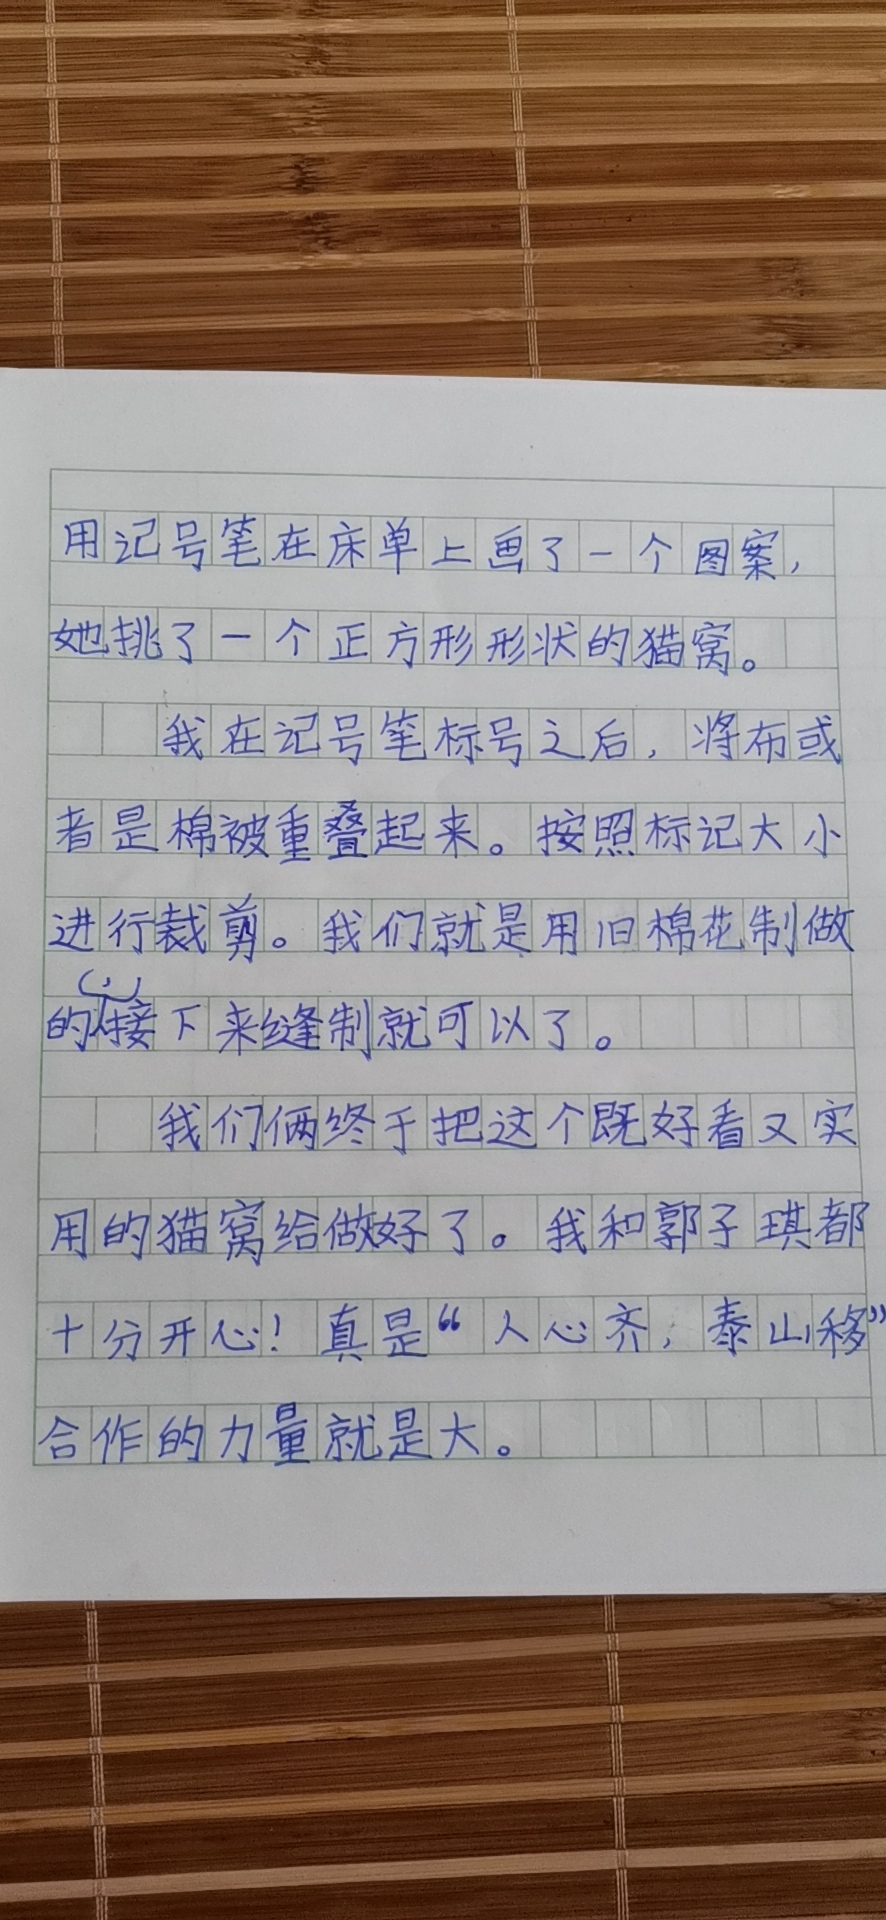 用记号笔在床单上画了一个图案,
她挑了一个正方形形状的猫窝。
我在记号笔标号之后,将布或
者是棉被重叠起来。按照标记大小
进行裁剪。我们就是用旧棉花制做
的,接下来缝制就可以了。
我们俩终于把这个既好看又实
用的猫窝给做好了。我和郭子琪都
十分开心!真是“人心齐,泰山移”
合作的力量就是大。